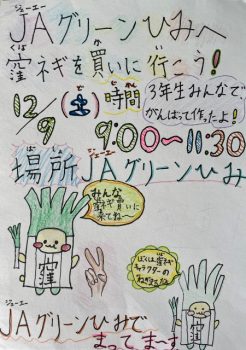 ジェーエー
JAグリーンひみへ
くぼ か い
窪ネギを買いに行こう!
12/9 (土) 時間
ど じかん
3年生みんなで
がんばって作ったよ!
9:00〜11:30
ばしょ ジェーエー
場所 JAグリーンひみ
みんな
窪ネギ買いに
来てね〜
窪
ぼくは窪ネギ
キャラクターの
窪
ジェーエー
JAグリーンひみで
まってまーす